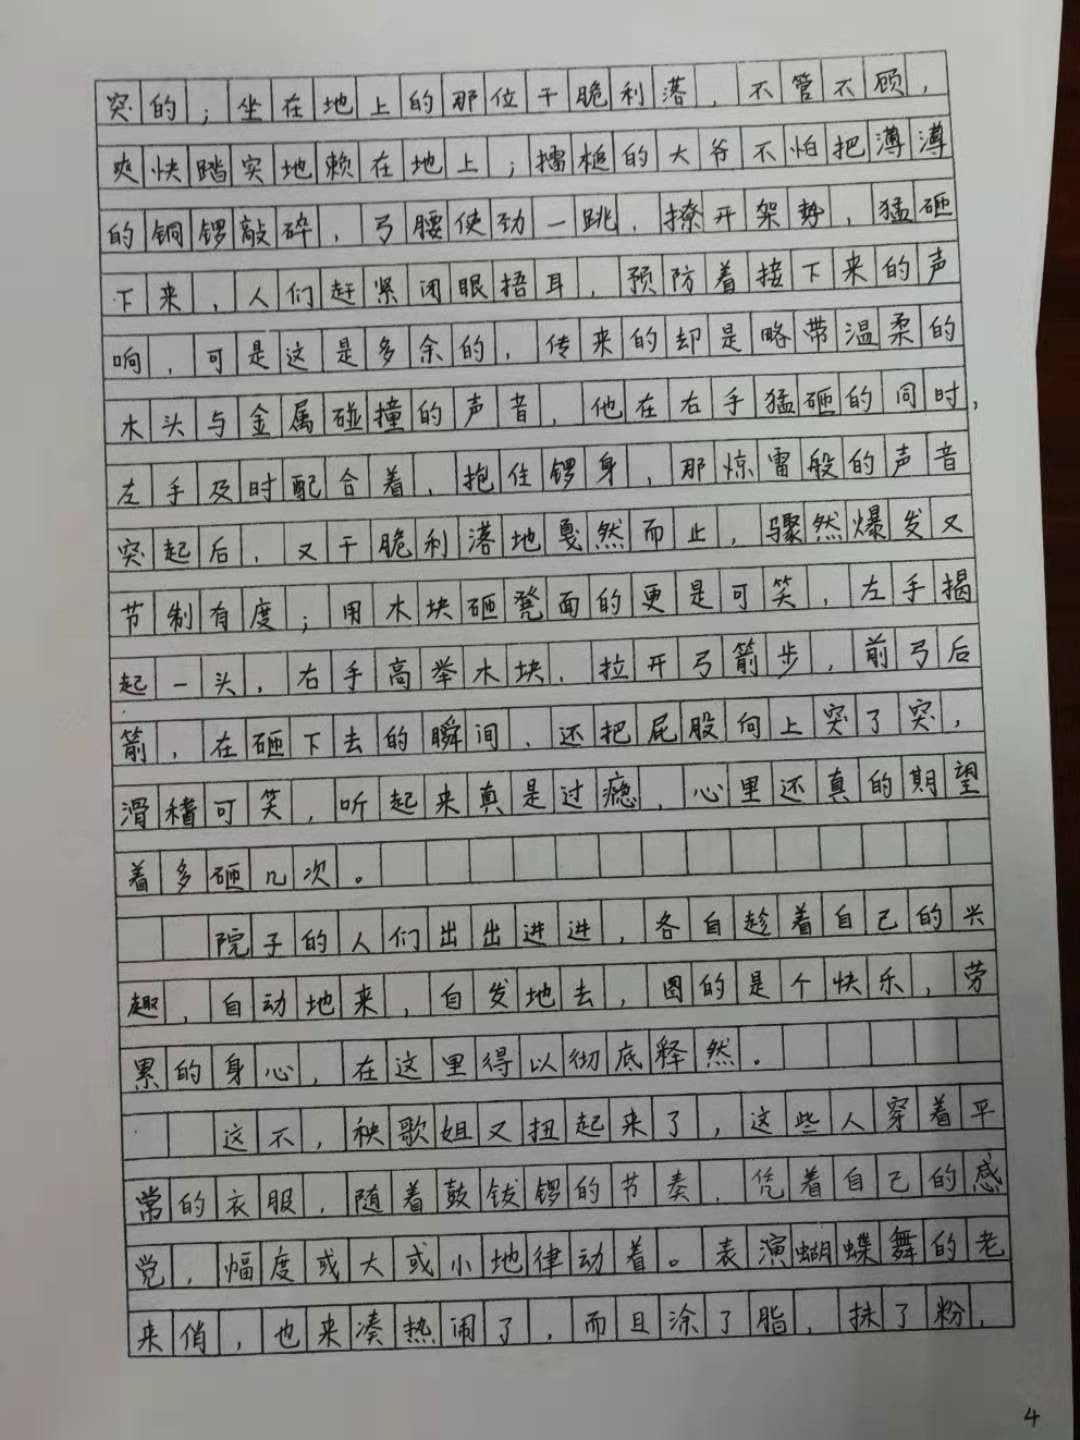 突的；坐在地上的那位干脆利落，不管不顾，
爽快踏实地赖在地上；擂槌的大爷不怕把薄薄
的铜锣敲碎，弓腰使劲一跳，撩开架势，猛砸
下来，人们赶紧闭眼捂耳，预防着接下来的声
响，可是这是多余的，传来的却是略带温柔的
木头与金属碰撞的声音，他在右手猛砸的同时，
左手及时配合着，抱住锣身，那惊雷般的声音
突起后，又干脆利落地戛然而止，骤然爆发又
节制有度；用木块砸凳面的更是可笑，左手揭
起一头，右手高举木块，拉开弓箭步，前弓后
箭，在砸下去的瞬间，还把屁股向上突了突，
滑稽可笑，听起来真是过瘾，心里还真的期望
着多砸几次。
院子的人们出出进进，各自趁着自己的兴
趣，自动地来，自发地去，图的是个快乐，劳
累的身心，在这里得以彻底释然。
这不，秧歌姐又扭起来了，这些人穿着平
常的衣服，随着鼓钹锣的节奏，凭着自己的感
觉，幅度或大或小地律动着。表演蝴蝶舞的老
来俏，也来凑热闹了，而且涂了脂，抹了粉，
4